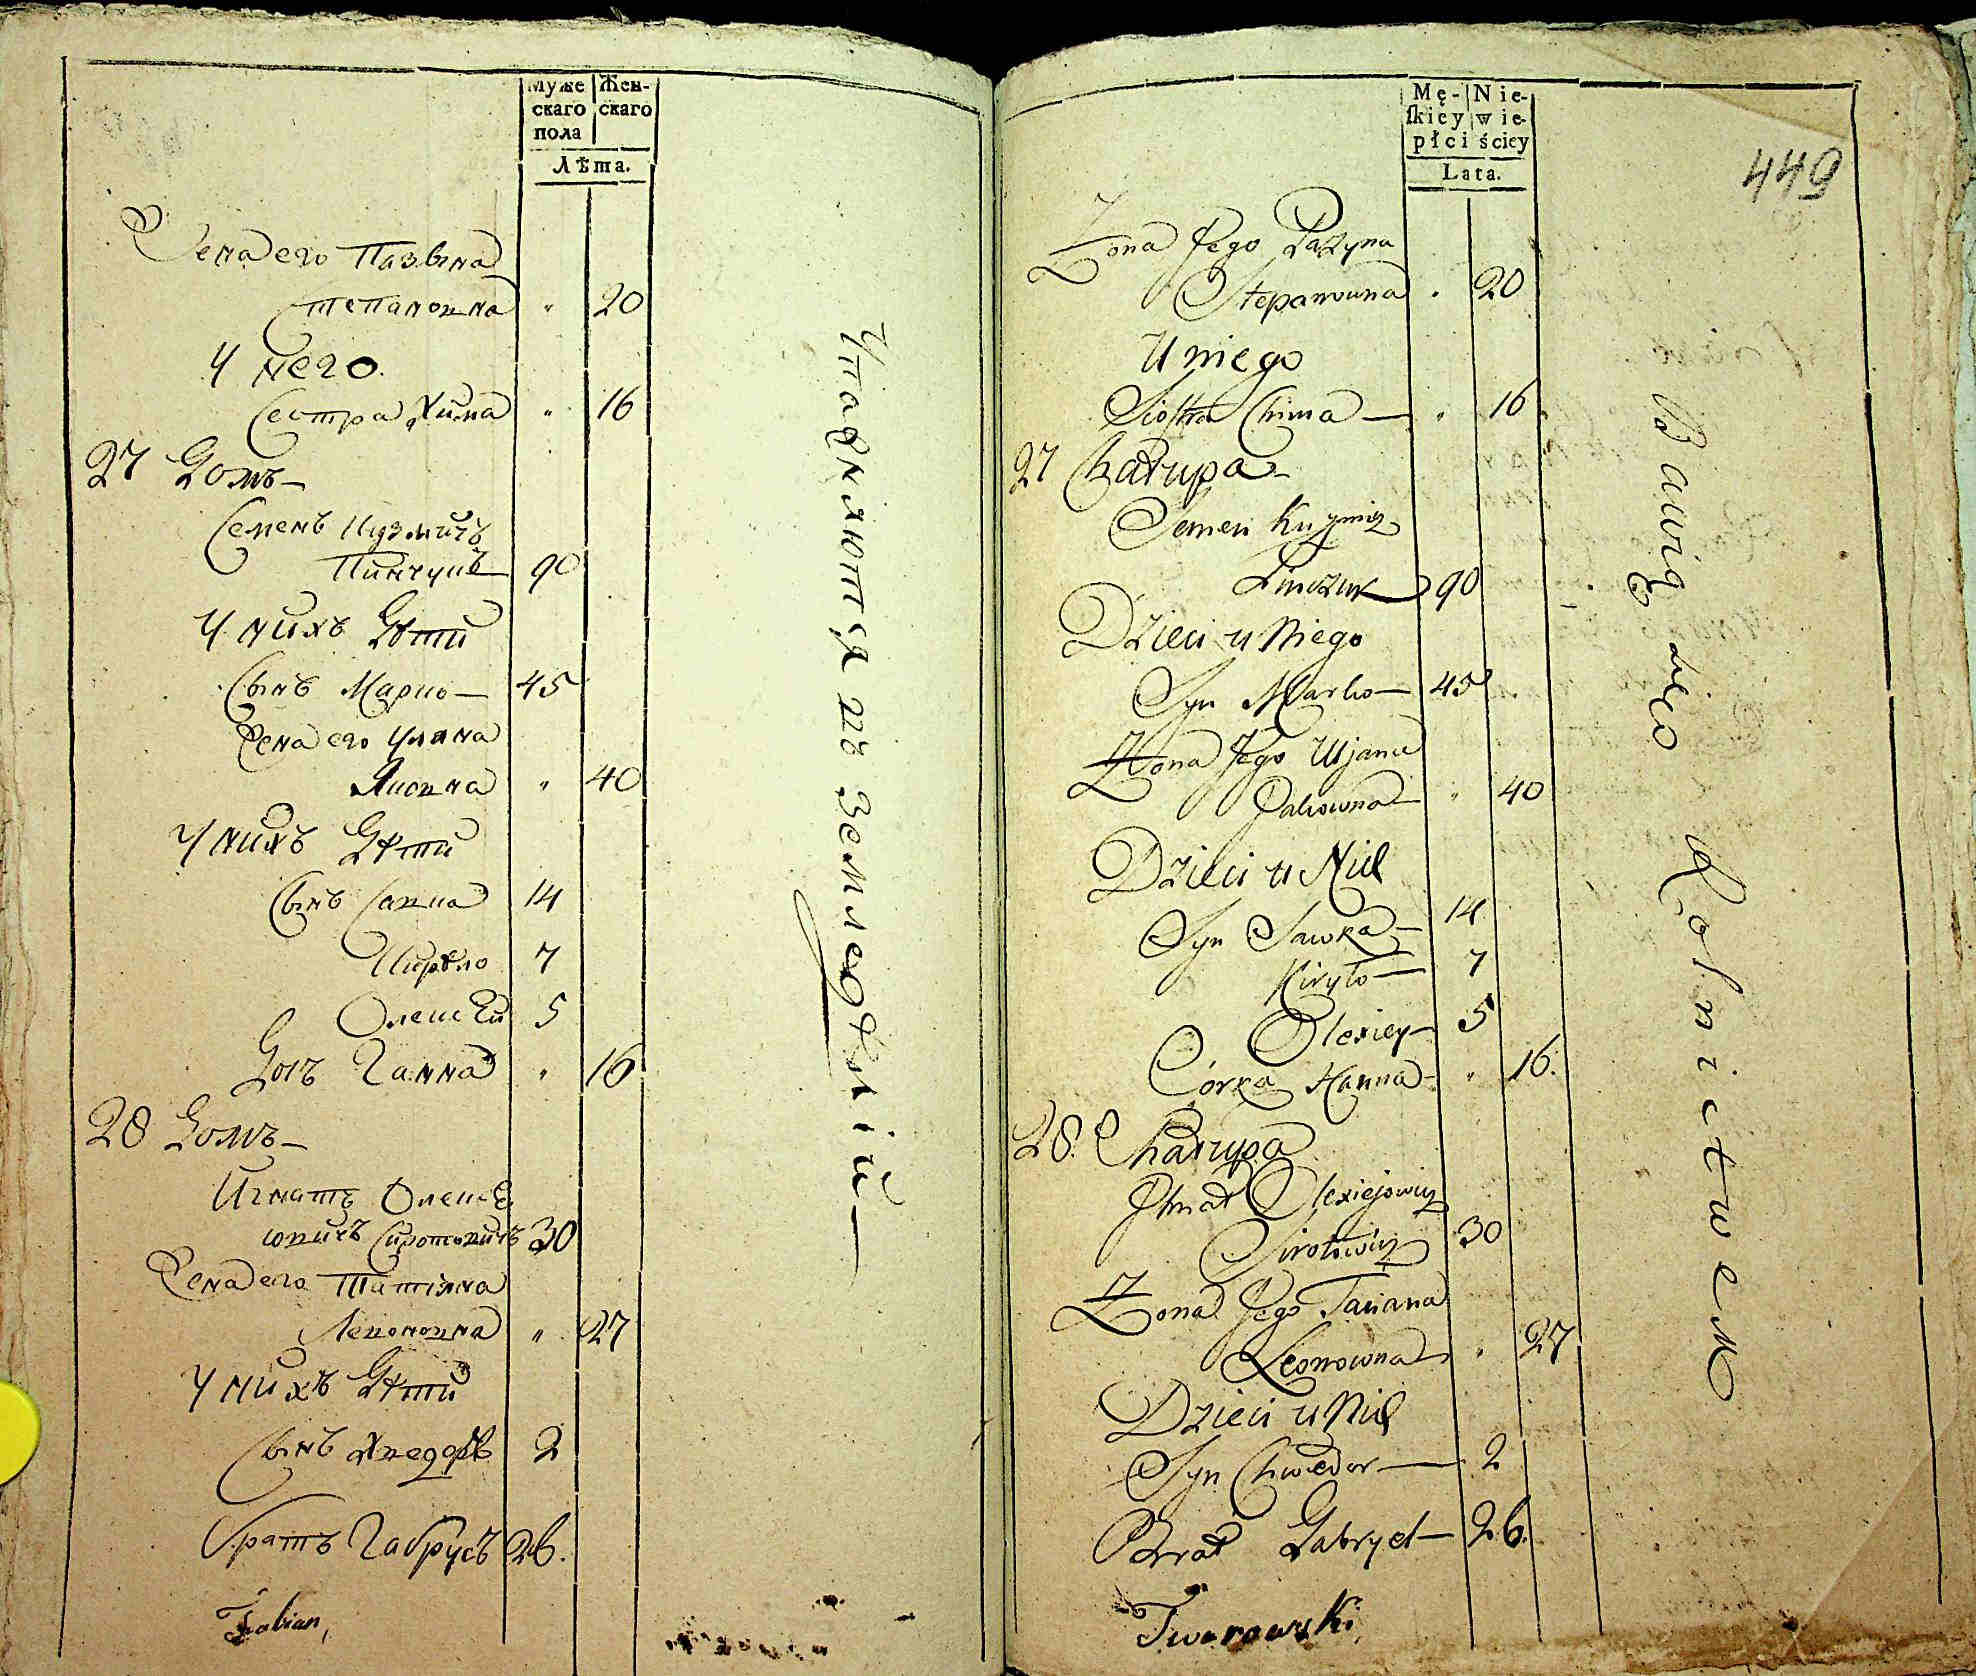 Муже
скаго
пола
Жен-
скаго
Лѣта.
Жена его Пазына
Степановна " 20
У него
Сестра Хима " 16
27 Домъ
Семенъ Кузмичъ
Пинчукъ 90
У нихъ Дѣти
Сынъ Марко 45
Жена его Уляна
Яковна " 40
У нихъ Дѣти
Сынъ Савка 14
Кирыло 7
Олексѣй 5
Дочъ Ганна " 16
28 Домъ
Игнатъ Олексѣ
ювичъ Сиротовичъ 30
Жена его Татіяна
Леоновна " 27
У нихъ Дѣти
Сынъ Хведоръ 2
братъ Габрусъ 26.
Fabian,
Упражняются въ земледѣлій
Mę-
skiey
płci
Nie-
wie-
ściey
Lata.
449
Żona Jego Pazyna
Stepanowna " 20
U niego
Siostra Chima " 16
27 Chałupa
Semen Kuzmicz
Pinczuk 90
Dzieci u Niego
Syn Marko 45
Żona Jego Uljana
Jakowna " 40
Dzieci u Nich
Syn Sawka 14
Kiryło 7
Olexiey 5
Córka Hanna " 16.
28. Chałupa
Ihnat Olexiejowicz
Sirotowicz 30
Żona Jego Taciana
Leonowna " 27
Dzieci u Nich
Syn Chwedor 2
Brat Gabryel 26.
Twarowski
Bawią się Rolnictwem